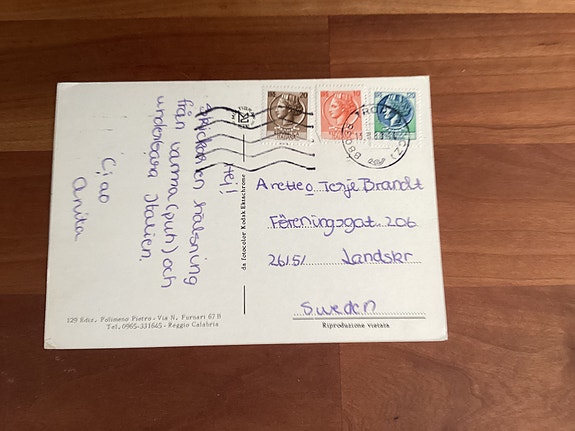 Hej!
hälsning
från varma (puh) och
underbara Italien.
Ciao
Anita
da fotocolor Kodak Ektachrome
Terje Brandt
Föreningsgat 206
26151 Landskr
Sweden
Riproduzione vietata
129 Ediz. Polimeno Pietro - Via N. Furnari 67 B
Tel. 0965-331645 - Reggio Calabria